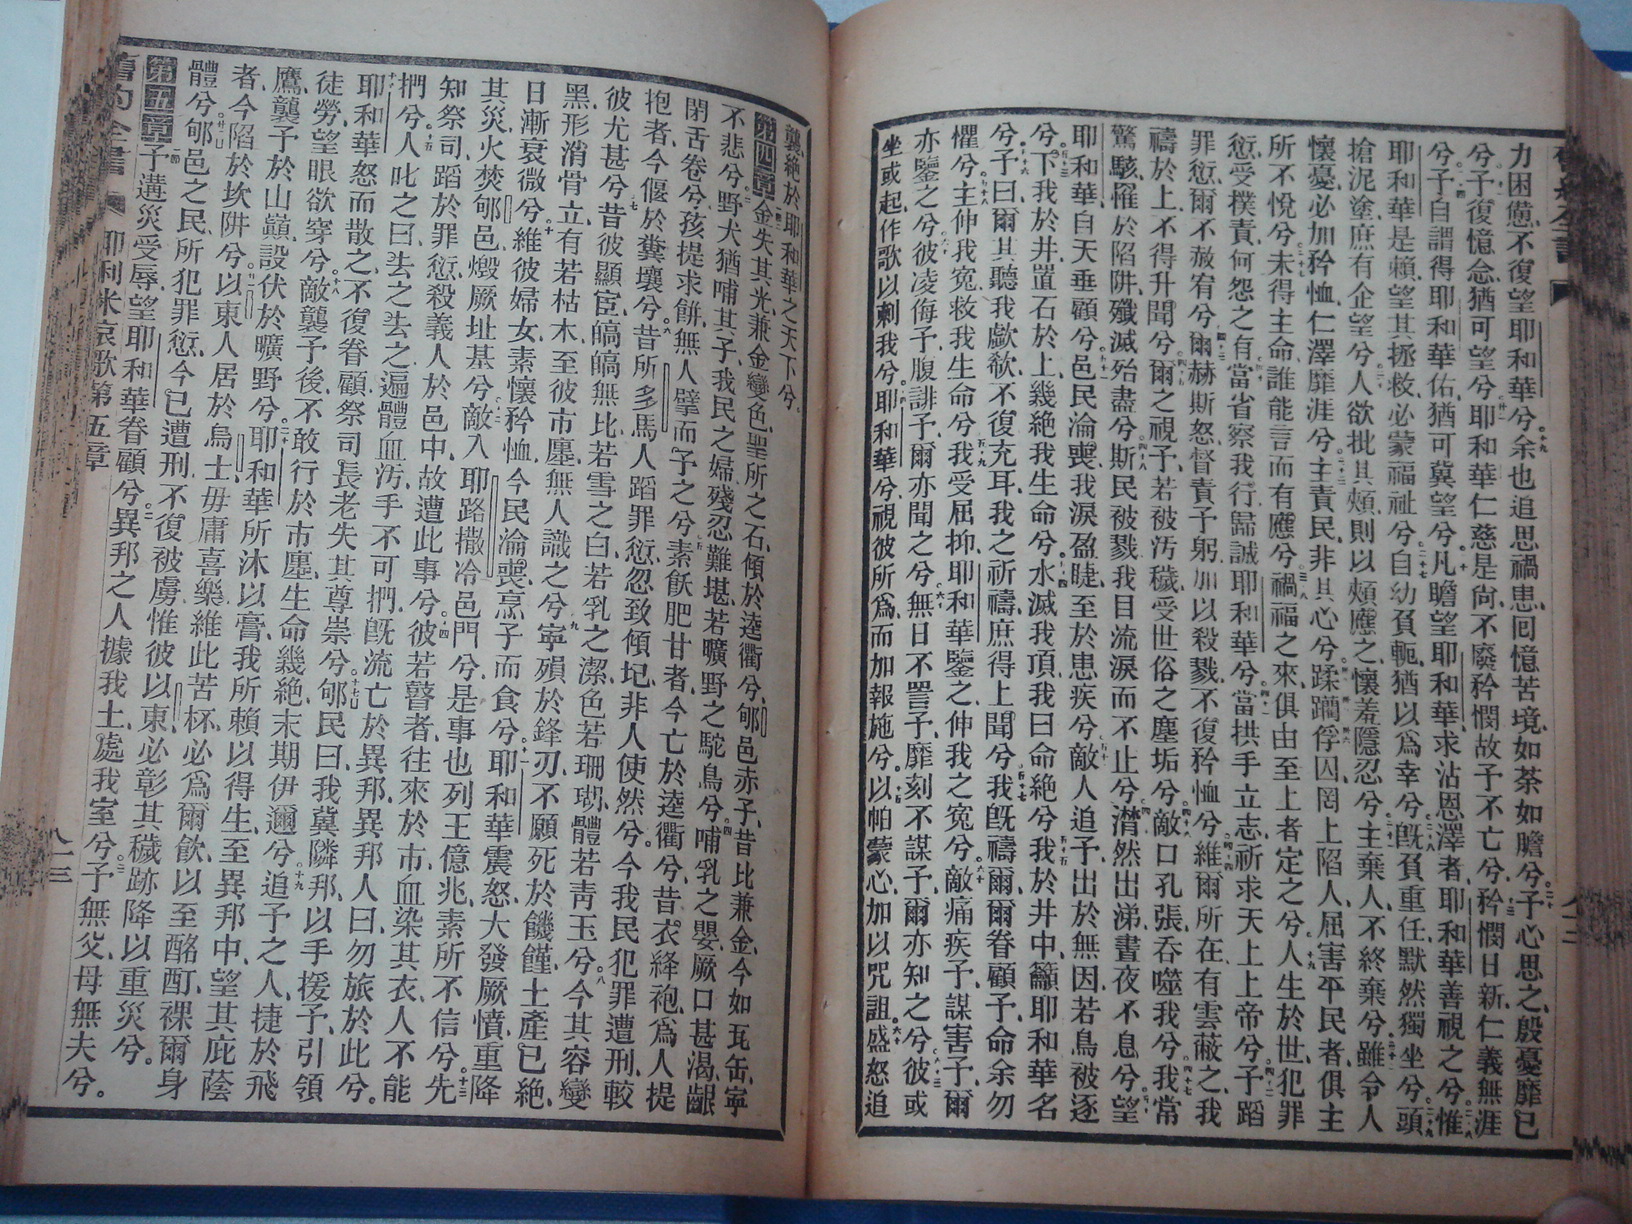 力困憊、不復望耶和華兮、余也追思禍患、回憶苦境、如荼如膽兮。予心思之、殷憂靡已
兮、予復憶念、猶可望兮、耶和華仁慈、是尙不廢、矜憫故予不亡兮、矜憫日新、仁義無涯
兮、予自謂得耶和華佑、猶可冀望兮、凡瞻望耶和華、求沾恩澤者、耶和華善視之兮、惟
耶和華是賴、望其拯救、必蒙福祉兮、自幼負軛、猶以爲幸兮、旣負重任、默然獨坐兮、頭
搶泥塗、庶有企望兮、人欲批其頰、則以頰應之、懷羞隱忍兮、主棄人不終棄兮、雖令人
懷憂、必加矜恤、仁澤靡涯兮、主責民、非其心兮、蹂躪俘囚、罔上陷人、屈害平民者、俱主
所不悅兮、未得主命、誰能言而有應兮、禍福之來、俱由至上者定之兮、人生於世、犯罪
愆、受撲責、何怨之有、當省察我行、歸誠耶和華兮、當拱手立志、祈求天上上帝兮、予蹈
罪愆、爾不赦宥兮、爾赫斯怒、督責予躬、加以殺戮、不復矜恤兮、維爾所在、有雲蔽之、我
禱於上、不得升聞兮、爾之視予、若被汚穢、受世俗之塵垢兮、敵口孔張、吞噬我兮、我常
驚駭、罹於陷阱、殲滅殆盡兮、斯民被戮、我目流淚而不止兮、潸然出涕、晝夜不息兮、望
耶和華自天垂顧兮、邑民淪喪、我淚盈睫、至於患疾兮、敵人追予、出於無因、若鳥被逐
兮、下我於井、置石於上、幾絕我生命兮、水滅我頂、我曰命絕兮、我於井中、籲耶和華名
兮、予曰、爾其聽我歔欷、不復充耳、我之祈禱、庶得上聞兮、我旣禱爾、爾眷顧予、命余勿
懼兮、主伸我寃、救我生命兮、我受屈抑、耶和華鑒之、伸我之寃兮、敵痛疾予、謀害予、爾
亦鑒之兮、彼凌侮予、腹誹予、爾亦聞之兮、無日不詈予、靡刻不謀予、爾亦知之兮、彼或
坐或起、作歌以刺我兮、耶和華兮、視彼所爲、而加報施兮、以帕蒙心、加以咒詛、盛怒追
襲、絕於耶和華之天下兮、
第四章 金失其光、兼金變色、聖所之石、傾於逵衢兮、郇邑赤子、昔比兼金、今如瓦缶、寧
不悲兮、野犬猶哺其子、我民之婦、殘忍難堪、若曠野之駝鳥兮、哺乳之嬰、厥口甚渴、齦
閉舌卷兮、孩提求餅、無人擘而予之兮、素飫肥甘者、今亡於逵衢兮、昔衣絳袍、爲人提
抱者、今偃於糞壤兮、昔所多馬人蹈罪愆、忽致傾圮、非人使然兮、今我民犯罪遭刑、較
彼尤甚兮、昔彼顯宦、皜皜無比、若雪之白、若乳之潔、色若珊瑚、體若靑玉兮、今其容變
黑、形消骨立、有若枯木、至彼市廛、無人識之兮、寧殞於鋒刃、不願死於饑饉、土產已絕、
日漸衰微兮、維彼婦女、素懷矜恤、今民淪喪、烹子而食兮、耶和華震怒、大發厥憤、重降
其災、火焚郇邑、燬厥址基兮、敵入耶路撒冷邑門兮、是事也、列王億兆、素所不信兮、先
知祭司、蹈於罪愆、殺義人於邑中、故遭此事兮、彼若瞽者、往來於市、血染其衣、人不能
捫兮、人叱之曰、去之去之、遍體血汚、手不可捫、旣流亡於異邦、異邦人曰、勿旅於此兮、
耶和華怒而散之、不復眷顧、祭司長老、失其尊崇兮、郇民曰、我冀隣邦、以手援予、引領
徒勞、望眼欲穿兮、敵襲予後、不敢行於市廛、生命幾絕、末期伊邇兮、追予之人、捷於飛
鷹、襲予於山巔、設伏於曠野兮、耶和華所沐以膏、我所賴以得生、至異邦中、望其庇蔭
者、今陷於坎阱兮、以東人居於烏士、毋庸喜樂、維此苦杯、必爲爾飲、以至酩酊、裸爾身
體兮、郇邑之民、所犯罪愆、今已遭刑、不復被虜、惟彼以東、必彰其穢跡、降以重災兮。
第五章 予遘災受辱、望耶和華眷顧兮、異邦之人、據我土、處我室兮、予無父、母無夫兮。
舊約全書 耶利米哀歌 第五章 八十三